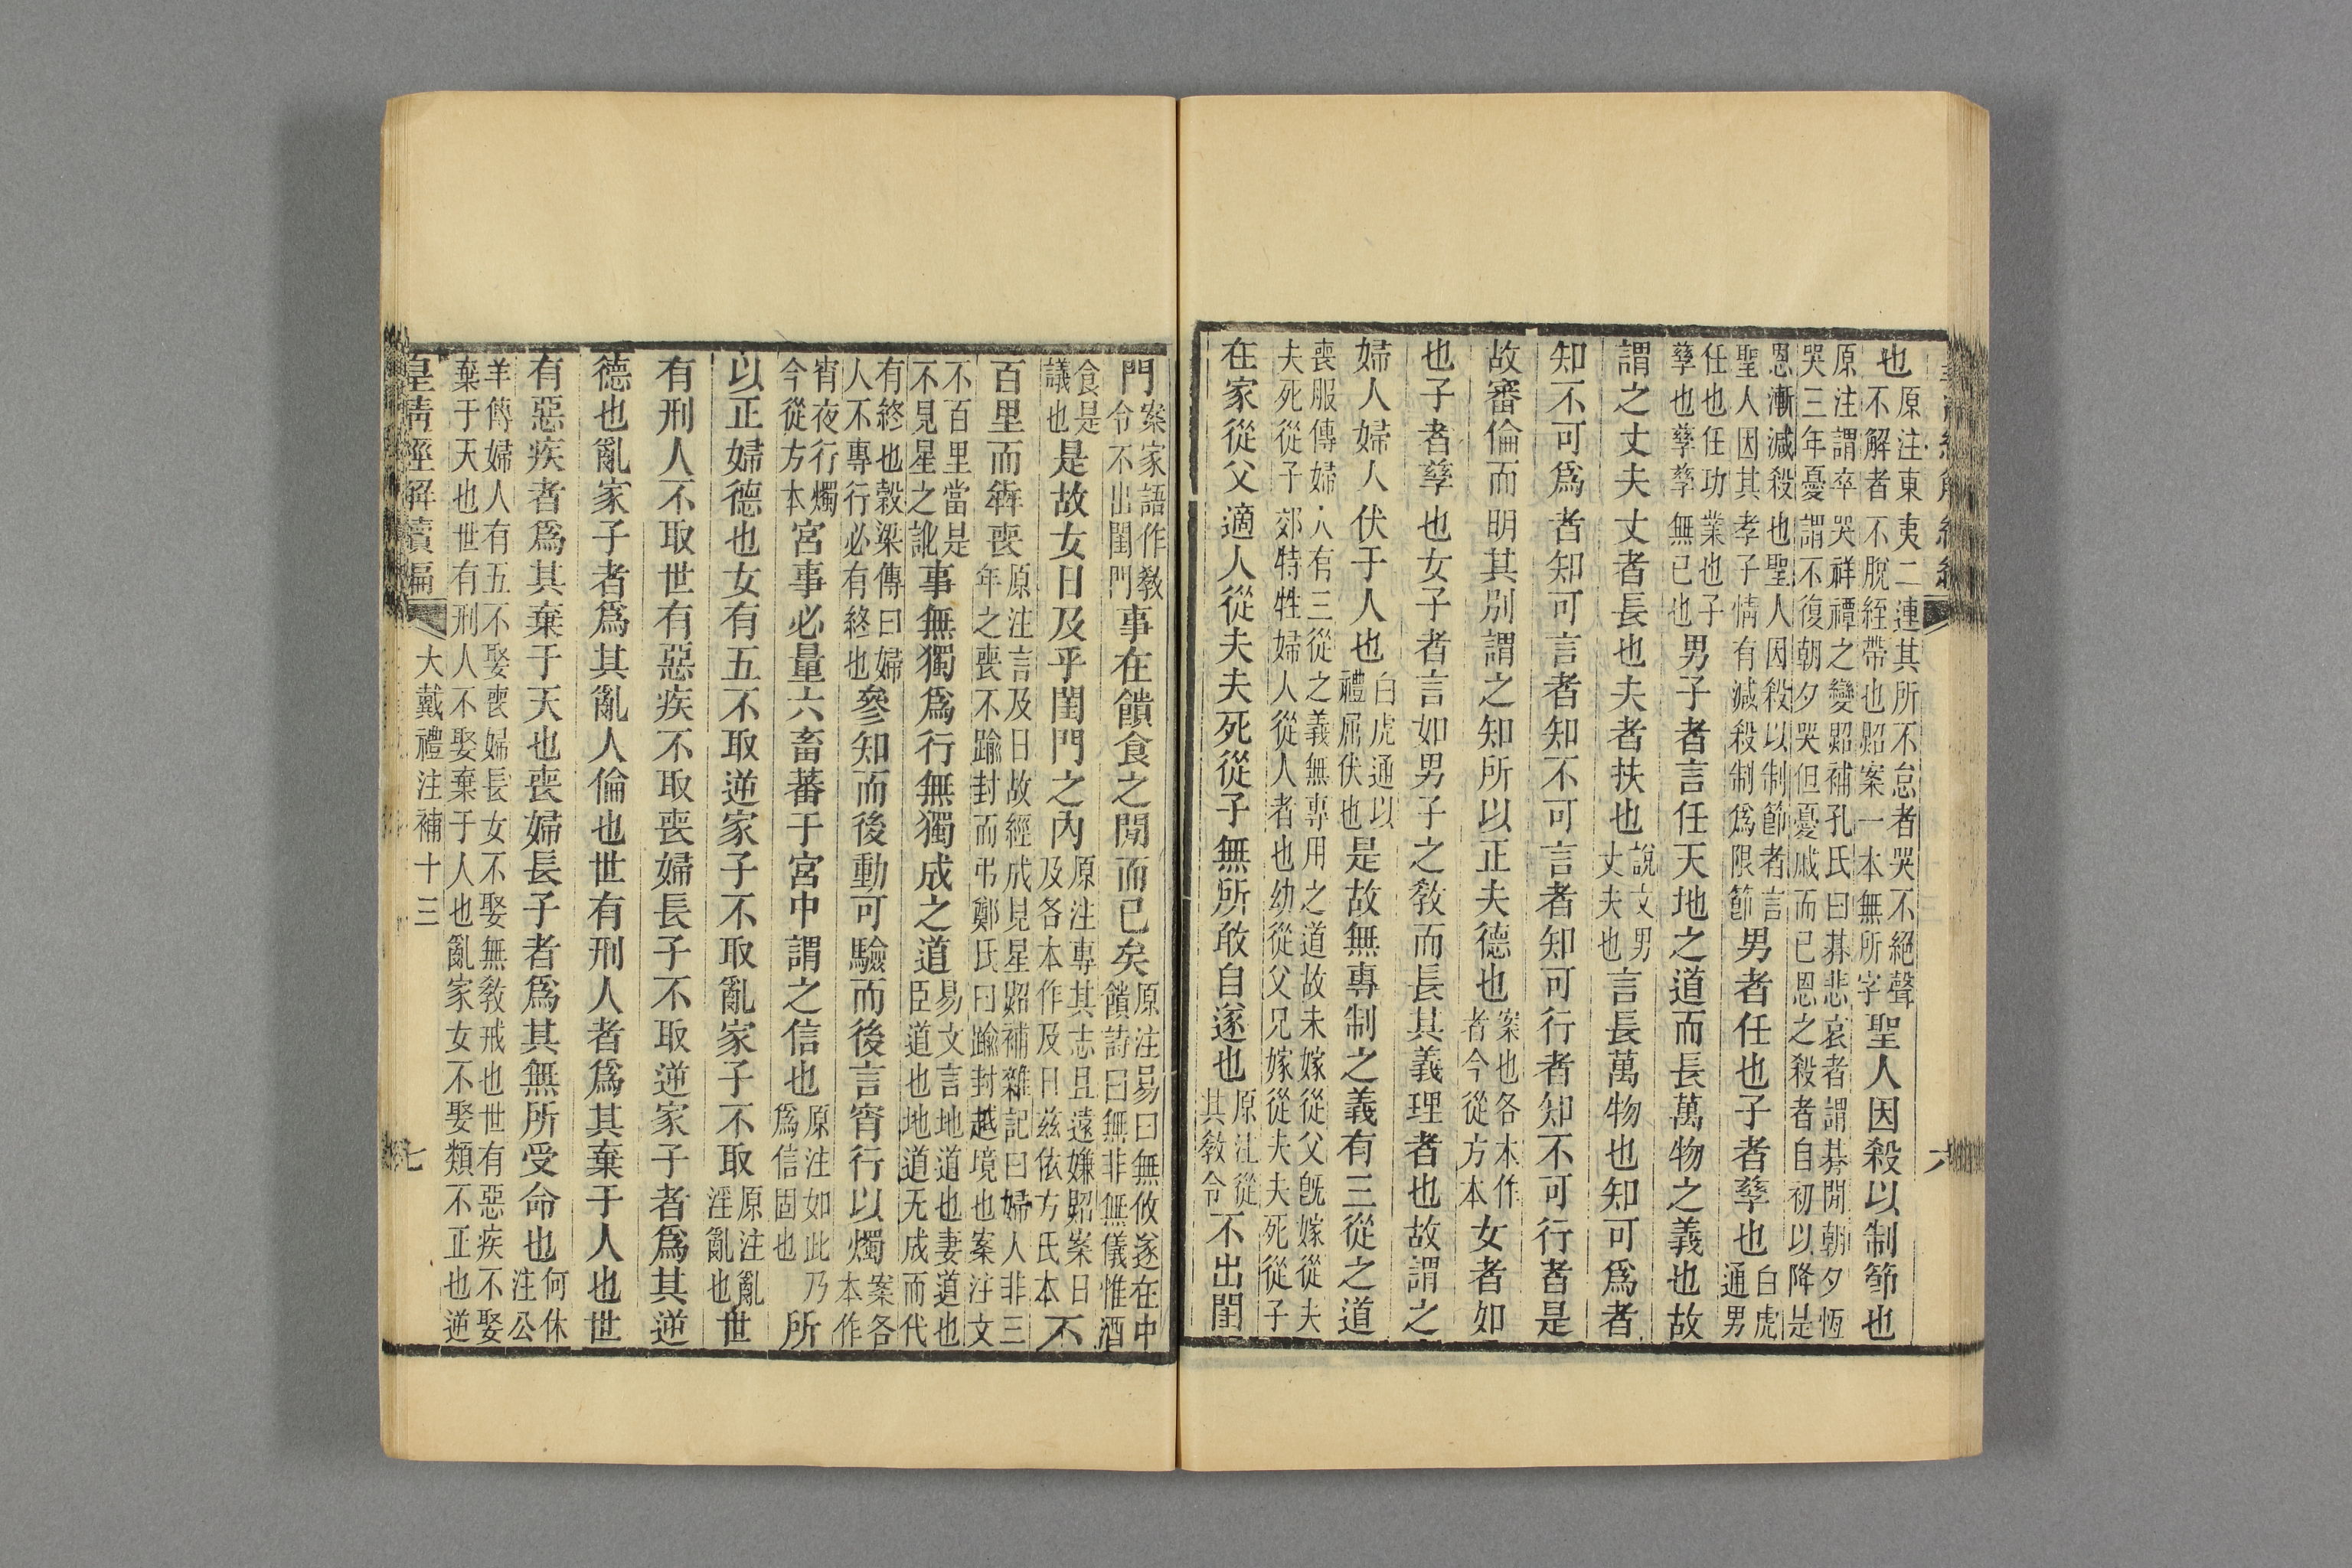 六
也原注東夷二連其所不怠者哭不絕聲不解者不脫絰帶也照案一本無所字聖人因殺以制節也
原注謂卒哭祥禫之變照補孔氏曰朞悲哀者謂朞閒朝夕恆
哭三年憂謂不復朝夕哭但憂戚而已恩之殺者自初以降是
恩漸減殺也聖人因殺以制節者言聖人因其孝子情有減殺制爲限節男者任也子者孳也白虎通男
任也任功業也子孳也孳孳無已也男子者言任天地之道而長萬物之義也故
謂之丈夫丈者長也夫者扶也說文男丈夫也言長萬物也知可爲者
知不可爲者知可言者知不可言者知可行者知不可行者是
故審倫而明其別謂之知所以正夫德也案也各本作者今從方本女者如
也子者孳也女子者言如男子之敎而長其義理者也故謂之
婦人婦人伏于人也白虎通以禮屈伏也是故無專制之義有三從之道
喪服傳婦人有三從之義無專用之道故未嫁從父旣嫁從夫
夫死從子郊特牲婦人從人者也幼從父兄嫁從夫夫死從子
在家從父適人從夫夫死從子無所敢自遂也原注從其敎令不出閨
門案家語作敎令不出閨門事在饋食之閒而已矣原注易曰無攸遂在中饋詩曰無非無儀惟酒
食是議也是故女日及乎閨門之內原注專其志且遠嫌照案日及各本作及日茲依方氏本不
百里而犇喪原注言及日故經成見星照補雜記曰婦人非三年之喪不踰封而弔鄭氏曰踰封越境也案注文
不百里當是不見星之訛事無獨爲行無獨成之道易文言地道也妻道也臣道也地道无成而代
有終也穀梁傳曰婦人不專行必有終也參知而後動可驗而後言宵行以燭案各本作
宵夜行燭今從方本宮事必量六畜蕃于宮中謂之信也原注如此乃爲信固也所
以正婦德也女有五不取逆家子不取亂家子不取原注亂淫亂也世
有刑人不取世有惡疾不取喪婦長子不取逆家子者爲其逆
德也亂家子者爲其亂人倫也世有刑人者爲其棄于人也世
有惡疾者爲其棄于天也喪婦長子者爲其無所受命也何休注公
羊傳婦人有五不娶喪婦長女不娶無敎戒也世有惡疾不娶
棄于天也世有刑人不娶棄于人也亂家女不娶類不正也逆
皇清經解續編 大戴禮注補十三 七